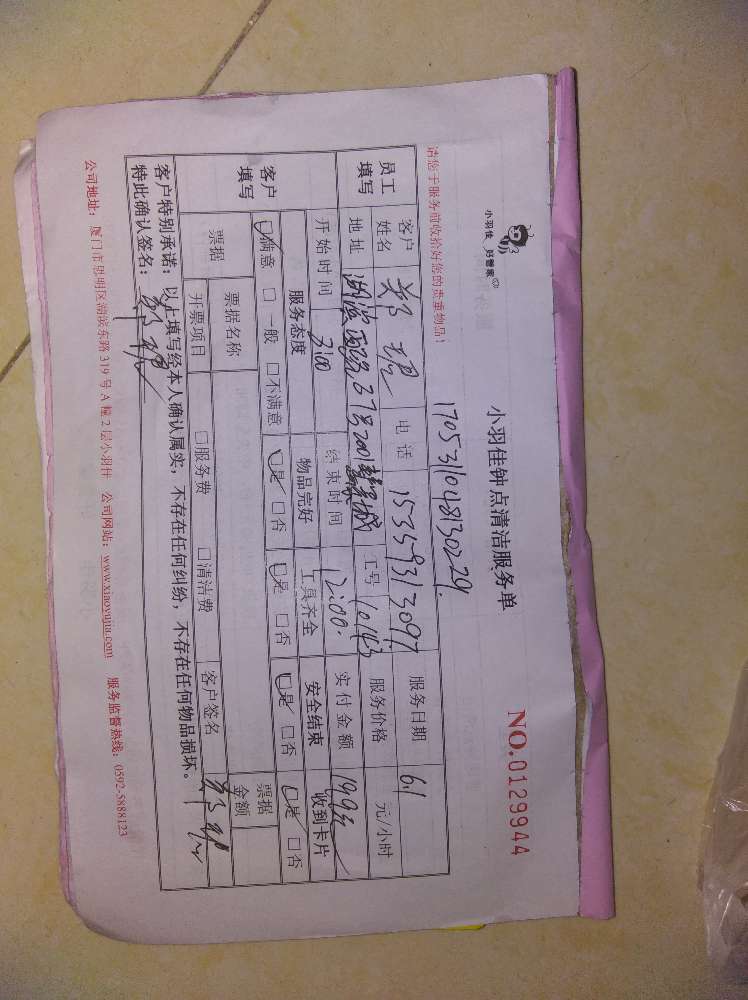 小羽佳 好管家
小羽佳钟点清洁服务单
NO.0129944
请您于服务前收拾好您的贵重物品！
17053110481302291
员工填写 客户姓名 郑 电话 15359313097 服务日期 6.1
地址 湖滨西路67号2001 工号 10143 服务价格 元/小时
开始时间 结束时间 12:00. 实付金额
客户填写 服务态度 物品完好 工具齐全 安全结束 收到卡片
☑满意 □一般 □不满意 ☑是 □否 ☑是 □否 ☑是 □否 ☑是 □否
票据 票据名称 票据金额
开票项目 □服务费 □清洁费 客户签名 郑
客户特别承诺：以上填写经本人确认属实，不存在任何纠纷，不存在任何物品损坏。
特此确认签名： 郑
公司地址：厦门市思明区湖滨东路 319 号 A 幢 2 层小羽佳 公司网站：www.xiaoyujia.com 服务监督热线：0592-5888123